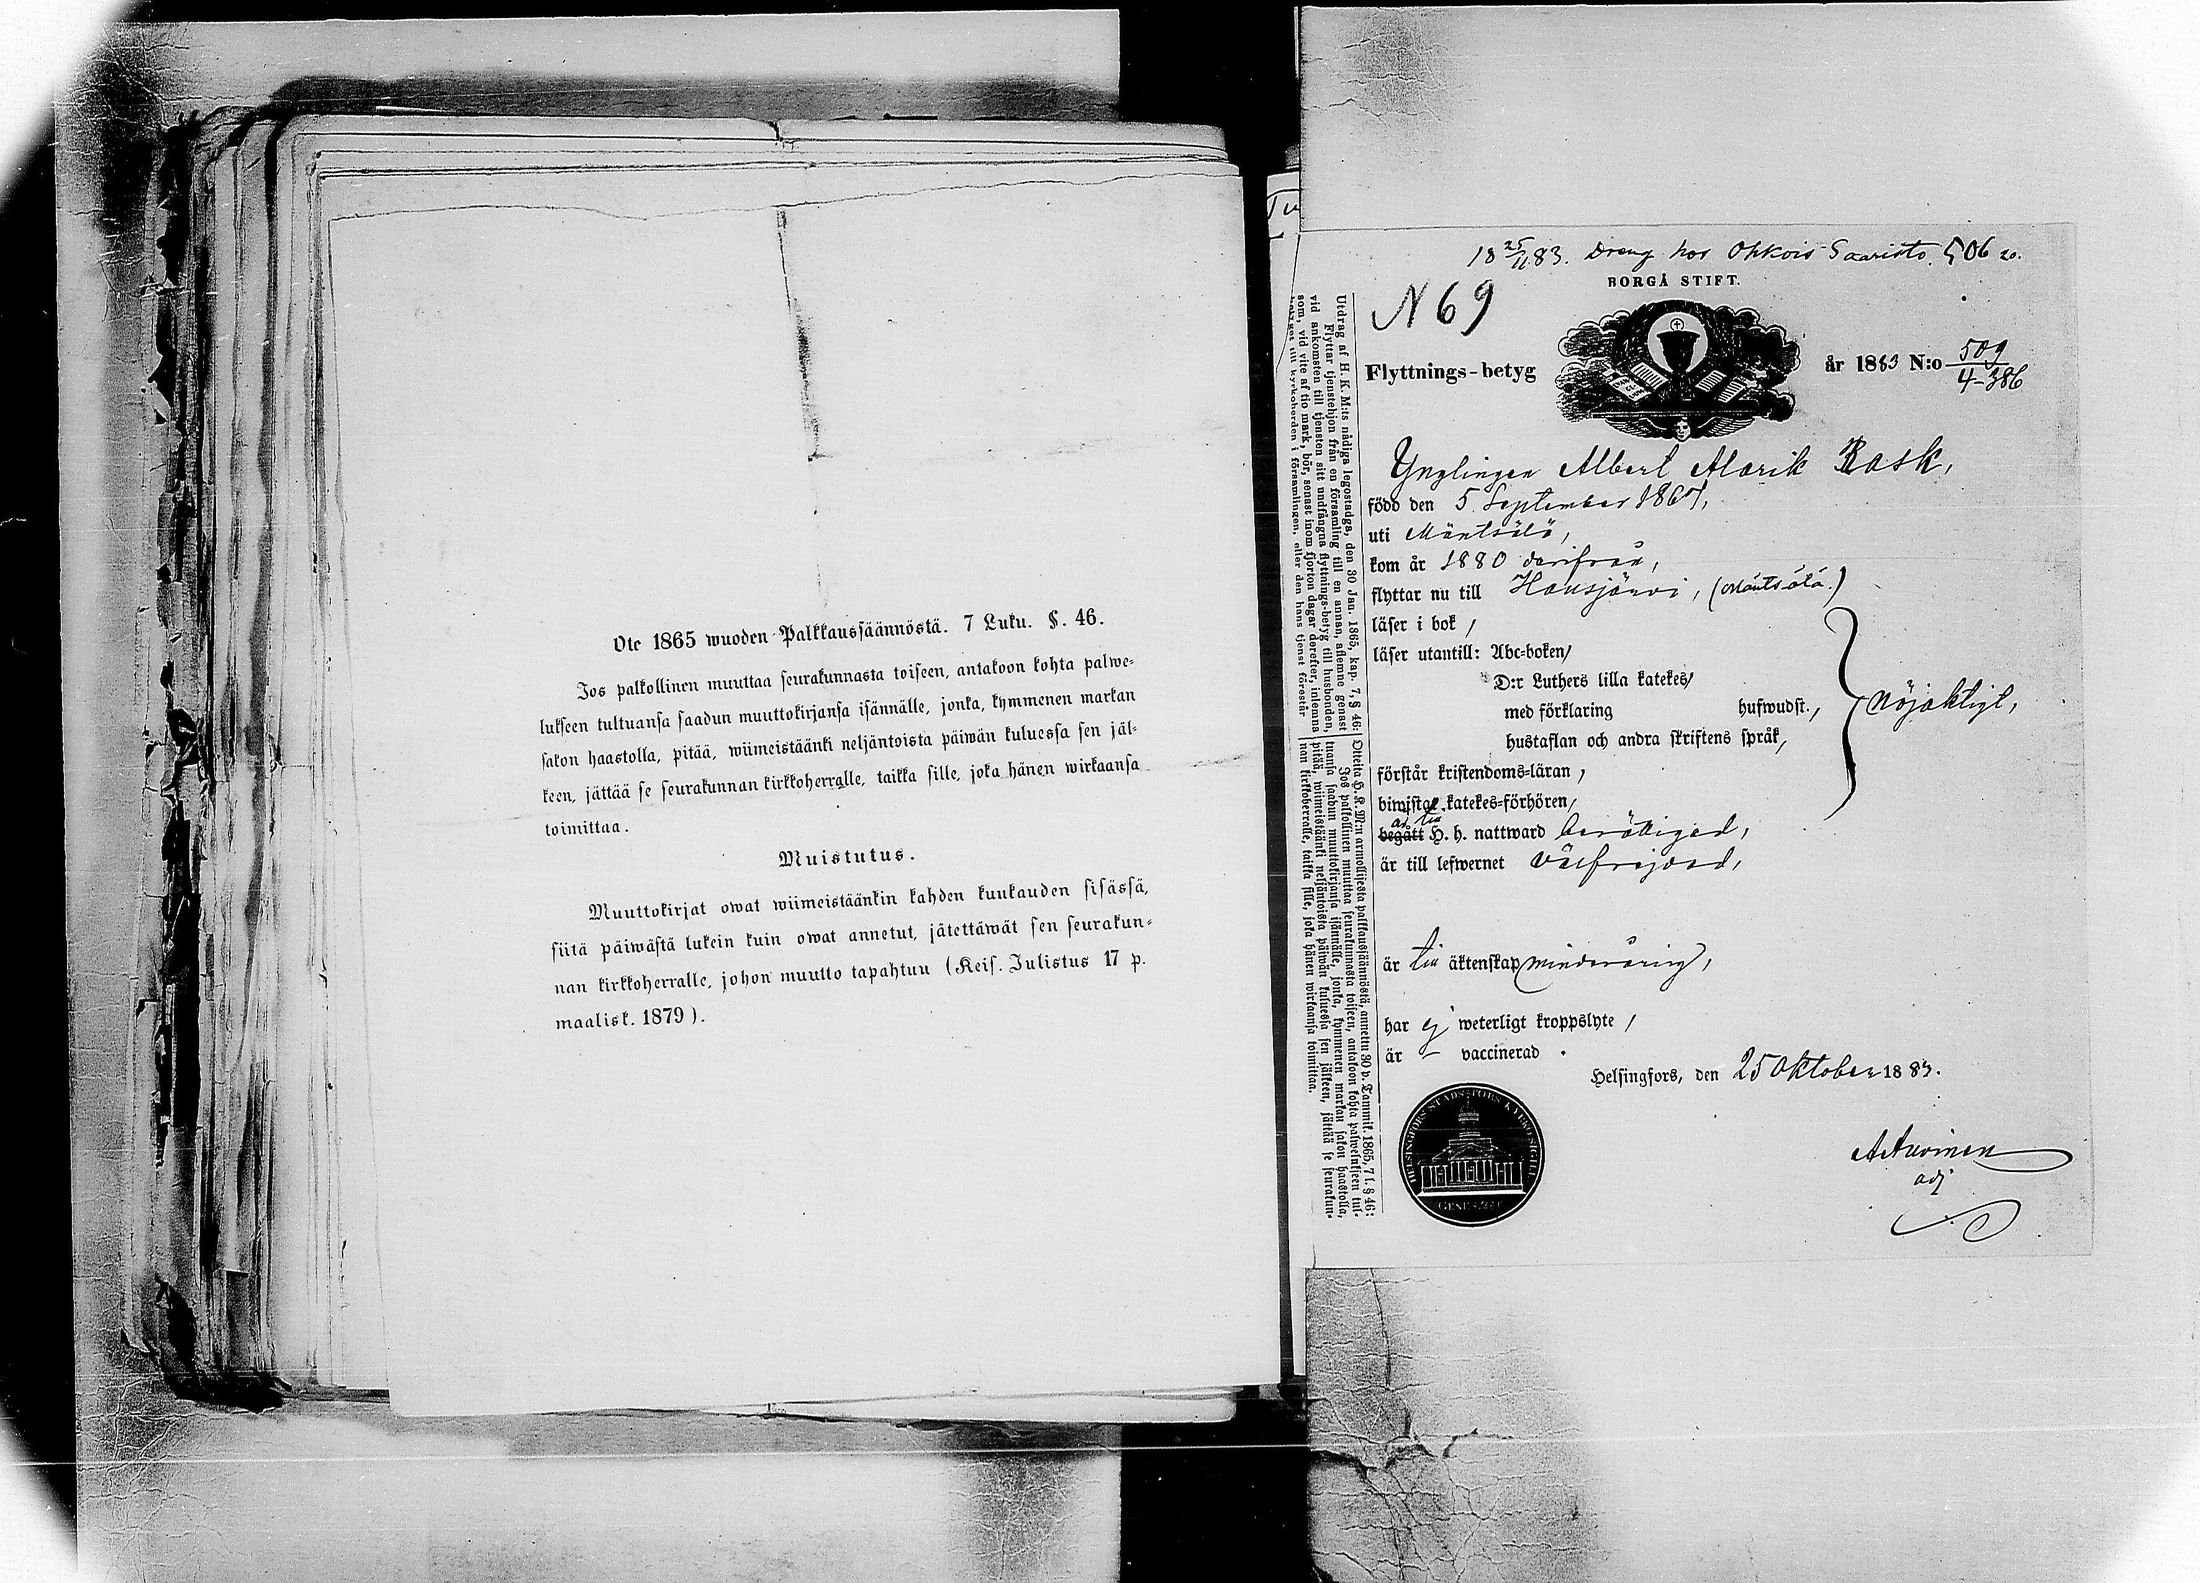 Ote 1865 wuoden Palkkaussäännöstä. 7 Luku. §. 46.
Jos palkollinen muuttaa seurakunnasta toiseen, antakoon kohta palwe-
lukseen tultuansa saadun muuttokirjansa isännälle, jonka, kymmenen markan
sakon haastolla, pitää, wiimeistäänki neljäntoista päiwän kuluessa sen jäl-
keen, jättää se seurakunnan kirkkoherralle, taikka sille, joka hänen wirkaansa
toimittaa.
Muistutus.
Muuttokirjat owat wiimeistäänkin kahden kuukauden sisässä,
siitä päiwästä lukein kuin owat annetut, jätettäwät sen seurakun-
nan kirkkoherralle, johon muutto tapahtuu (Keis. Julistus 17 p.
maalisk. 1879).
18 25/11 83. Dreng hos Ohkois Saaristo. 506
BORGÅ STIFT.
N 69
Flyttnings-betyg
år 1883 N:o 509
4-386
Ynglingen Albert Alarik Rask,
född den 5 September 1867,
uti Mäntsälä,
kom år 1880 därifrån,
flyttar nu till Hausjärvi, (Mäntsälä.)
läser i bok,
läser utantill: Abc-boken,
D:r Luthers lilla katekes,
med förklaring hufwudst.,
hustaflan och andra skriftens språk,
nöjaktigt,
förstår kristendoms-läran,
biwistat katekes-förhören,
begått H. h. nattward berättigad,
är till lefwernet välfrejdad,
är till äktenskap minderårig,
har ej weterligt kroppslyte,
är – vaccinerad.
Helsingfors, den 25 Oktober 1883.
adj
Utdrag af H. K. M:ts nådiga legostadga, den 30 Jan. 1865, kap. 7, § 46:
Flyttar tjenstehjon från en församling till en annan, aflemne genast
vid ankomsten till tjensten sitt undfångna flyttnings-betyg till husbonden,
som, vid vite af tio mark, bör, senast inom fjorton dagar derefter, inlemna
betyget till kyrkoherden i församlingen, eller den hans tjenst förestår
Otteita H. K. M:n armollisesta palkkaussäännöstä, annettu 30 p. Tammik. 1865, 7 l. § 46:
Jos palkollinen muuttaa seurakunnasta toiseen, antakoon kohta palwelukseen tul-
tuansa saadun muuttokirjansa isännälle, jonka, kymmenen markan sakon haastolla,
pitää, wiimeistäänki neljäntoista päiwän kuluessa sen jälkeen, jättää se seurakun-
nan kirkkoherralle, taikka sille, joka hänen wirkaansa toimittaa.
HELSINGFORS STADS